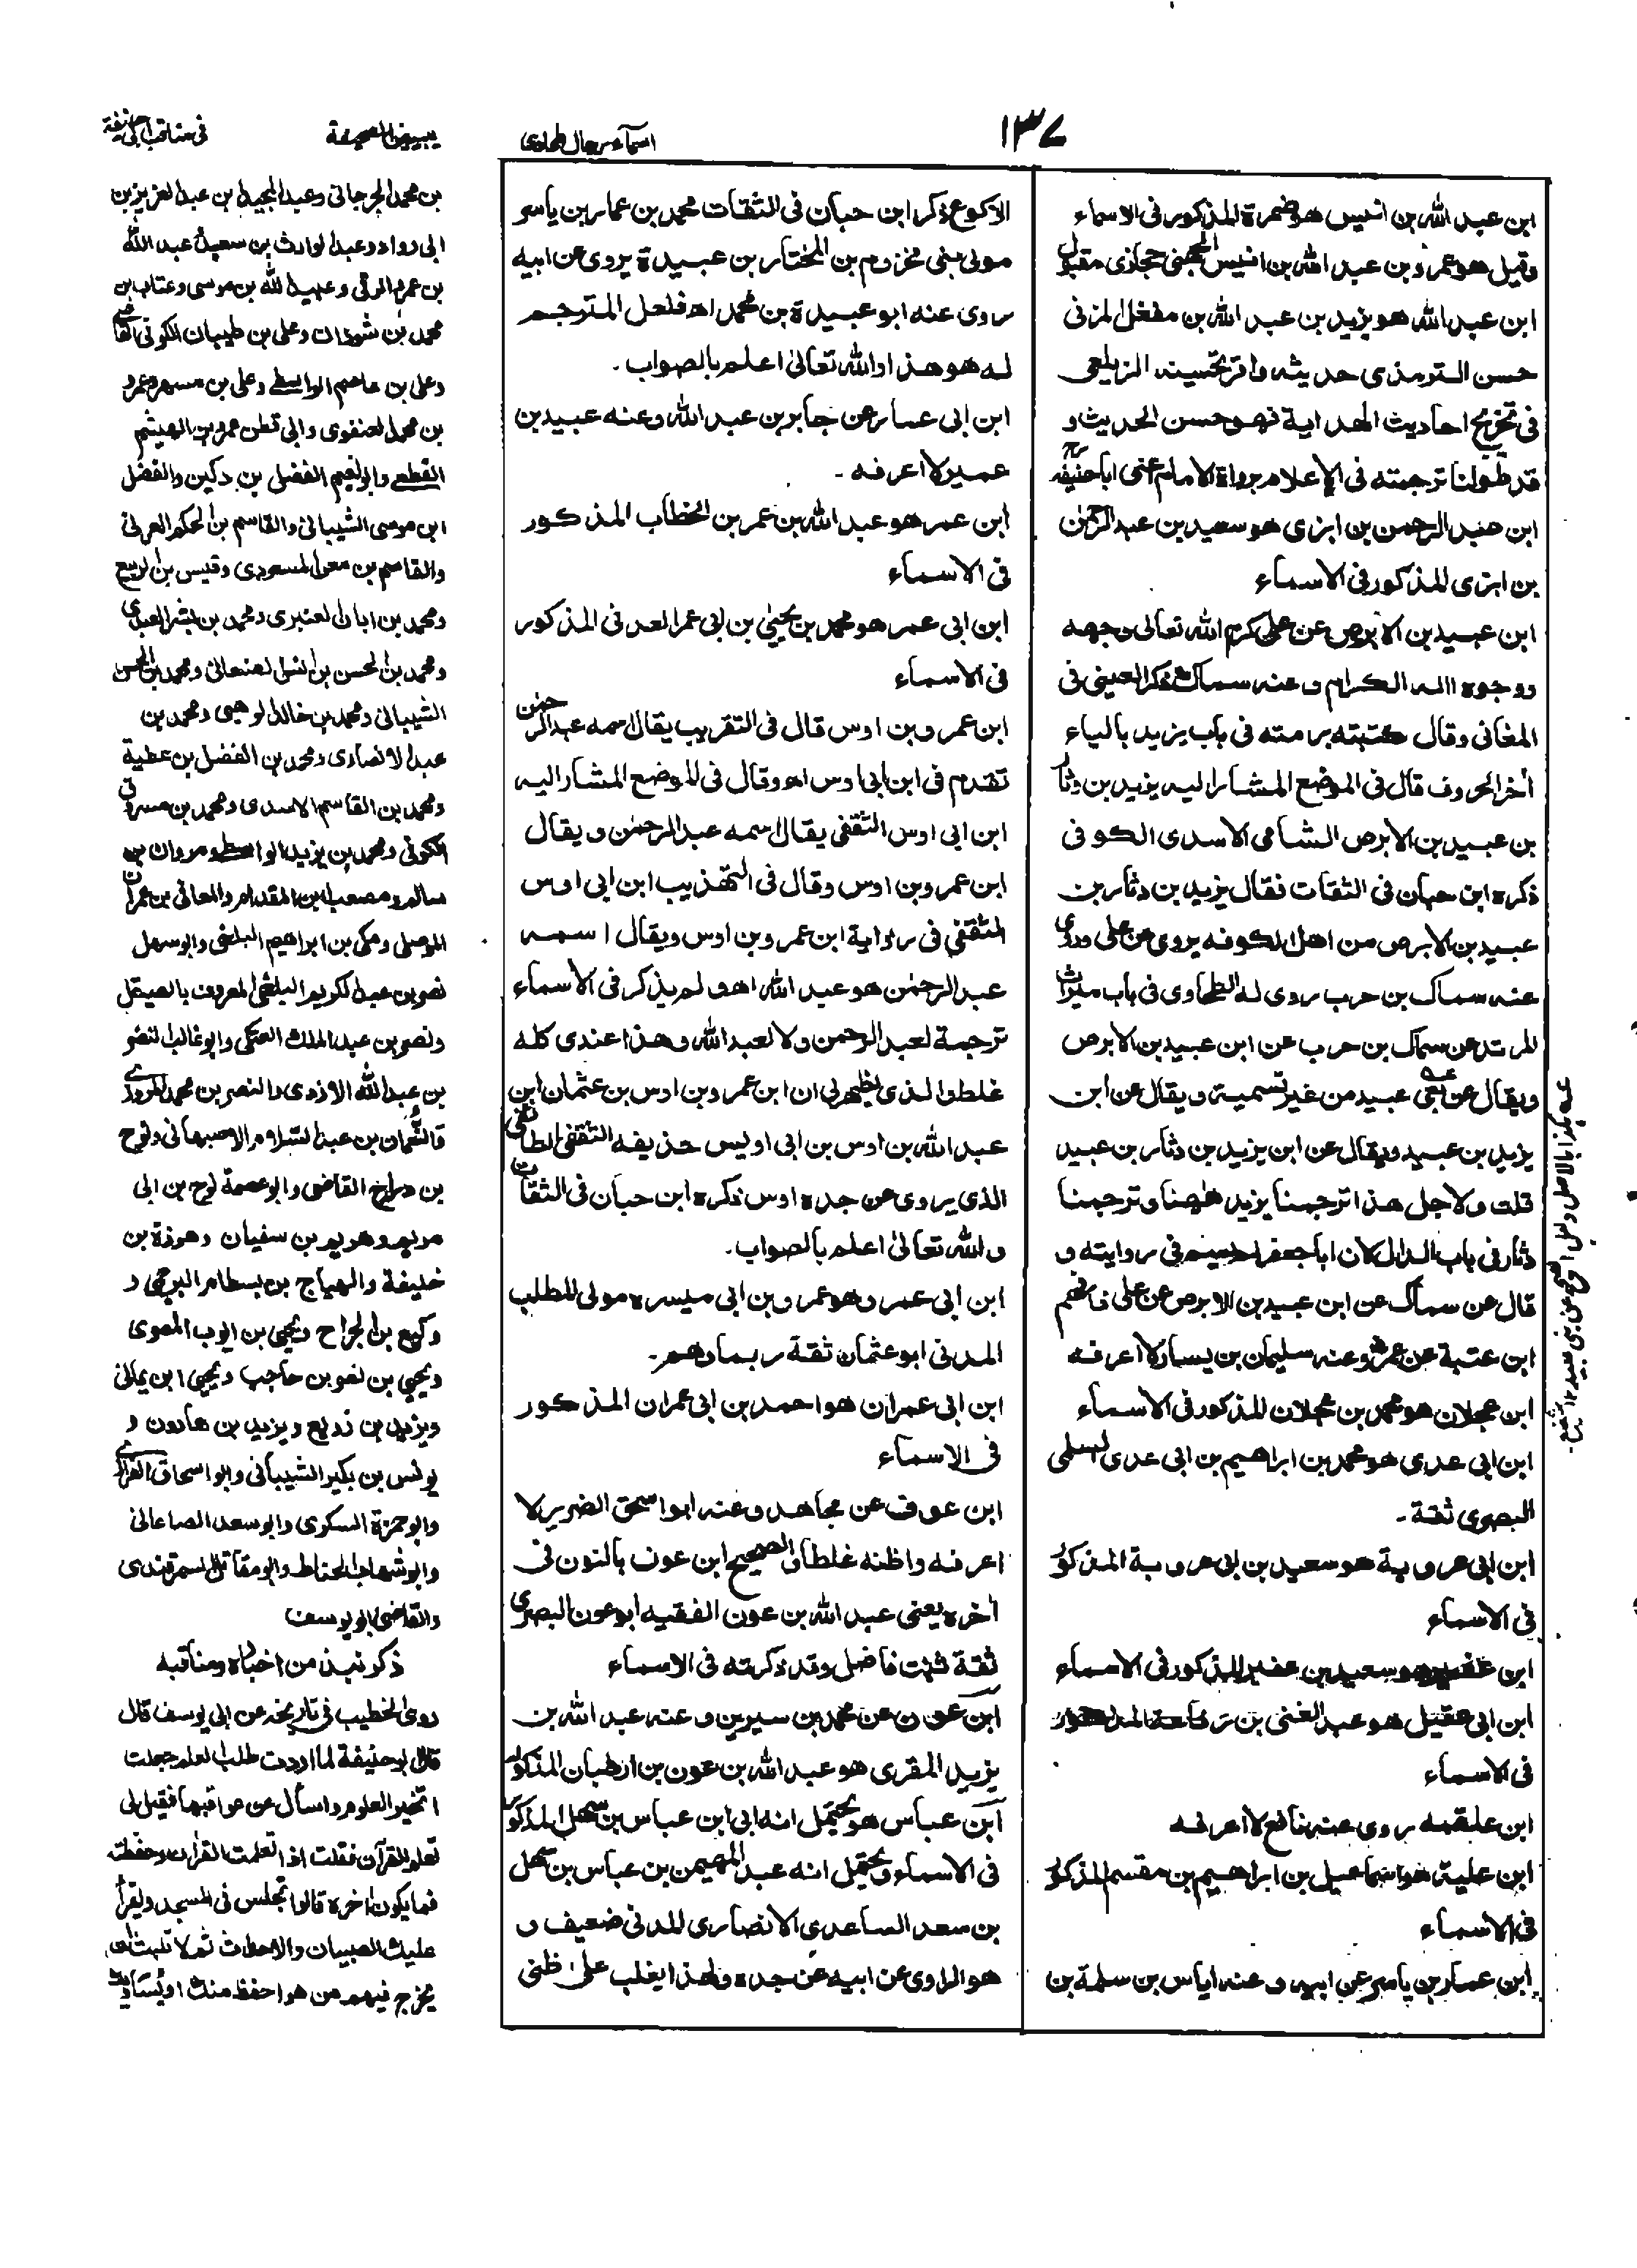 ١٣٧
اسماء رجال طحاوى
تبييض الصحيفة
فى مناقب ابى حنيفة
ابن عبد الله بن انيس هو ضمرة المذكور فى الاسماء
وقيل هو عمرو بن عبد الله بن انيس الجهنى حجازى مقبول
ابن عبد الله هو يزيد بن عبد الله بن مغفل المزنى
حسن الترمذى حديثه واقر بتحسينه الزيلعى
فى تخريج احاديث الهداية فهو حسن الحديث و
قد طولنا ترجمته فى الاعلام برواة الامام اعنى ابا حنيفه
ابن عبد الرحمن بن ابزى هو سعيد بن عبد الرحمٰن
بن ابزى المذكور فى الاسماء
ابن عبيد بن الابرص عن على كرم الله تعالى وجهه
ووجوه اٰله الكرام وعنه سماك ذكره العينى فى
المغانى وقال كتبته برمته فى باب يزيد بالياء
أخر الحروف قال فى الموضع المشار اليه يزيد بن دثار
بن عبيد بن الابرص الشامى الاسدى الكوفى
ذكره ابن حبان فى الثقات فقال يزيد بن دثار بن
عبيد بن الابرص من اهل الكوفه يروى عن على وروى
عنه سماك بن حرب روى له الطحاوى فى باب ميراث
المرتد عن سماك بن حرب عن ابن عبيد بن الابرص
ويقال عن بعى عبيد من غير تسمية ويقال عن ابن
يزيد بن عبيد ويقال عن ابن يزيد بن دثار بن عبيد
قلت ولاجل هذا ترجمنا يزيد هٰهنا وترجمنا
دثار فى باب الدال كان ابا جعفر احسبه فى روايته و
قال عن سماك عن ابن عبيد بن الابرص عن على فافهم
ابن عتبة عن عمر وعنه سليمان بن يسار لا اعرفه
ابن عجلان هو محمد بن عجلان المذكور فى الاسماء
ابن ابى عدى هو محمد بن ابراهيم بن ابى عدى السلمى
البصرى ثقة ۔
ابن ابى عروبة هو سعيد بن ابى عروبة المذكور
فى الاسماء
ابن عفير هو سعيد بن عفير المذكور فى الاسماء
ابن ابى عقيل هو عبد الغنى بن رفاعة المذكور
فى الاسماء
ابن علقمه روى عنه نافع لا اعرفه
ابن علية هو اسماعيل بن ابراهيم بن مقسم المذكور
فى الاسماء
ابن عمار بن ياسر عن ابيه وعنه اياس بن سلمة بن
الاكوع ذكر ابن حبان فى الثقات محمد بن عمار بن ياسر
مولى بنى مخزوم بن المختار بن عبيدة يروى عن ابيه
روى عنه ابو عبيدة بن محمد اه فلعل المترجم
له هو هذا والله تعالىٰ اعلم بالصواب ۔
ابن ابى عمار عن جابر بن عبد الله وعنه عبيد بن
عمير لا اعرفه ۔
ابن عمر هو عبد الله بن عمر بن الخطاب المذكور
فى الاسماء
ابن ابى عمر هو محمد بن يحيىٰ بن ابى عمر العدنى المذكور
فى الاسماء
ابن عمرو بن اوس قال فى التقريب يقال اسمه عبد الرحمٰن
تقدم فى ابن ابى اوس اه وقال فى الموضع المشار اليه
ابن ابى اوس الثقفى يقال اسمه عبد الرحمٰن ويقال
ابن عمرو بن اوس وقال فى التهذيب ابن ابى اوس
الثقفى فى رواية ابن عمرو بن اوس ويقال اسمه
عبد الرحمٰن هو عبد الله اه ولم يذكر فى الأسماء
ترجمة لعبد الرحمن ولا لعبد الله وهذا عندى كله
غلط والذى يظهر لى ان ابن عمرو بن اوس بن عثمان ابن
عبد الله بن اوس بن ابى اويس حذيفه الثقفى الطائفى
الذى يروى عن جده اوس ذكره ابن حبان فى الثقات
والله تعالىٰ اعلم بالصواب ۔
ابن ابى عمر وهو عمرو بن ابى ميسره مولى المطلب
المدنى ابو عثمان ثقة ربما وهم ۔
ابن ابى عمران هو احمد بن ابى عمران المذكور
فى الاسماء
ابن عوف عن مجاهد وعنه ابو اسحٰق الضرير لا
اعرفه واظنه غلطا والصحيح ابن عون بالنون فى
أخره يعنى عبد الله بن عون الفقيه أبو عون البصرى
ثقة ثبت فاضل وقد ذكرته فى الاسماء
ابن عون عن محمد بن سيرين وعنه عبد الله بن
يزيد المقرى هو عبد الله بن عون بن ارطبان المذكور
ابن عباس هو يحتمل انه ابى ابن عباس بن سهل المذكور
فى الاسماء ويحتمل انه عبد المهيمن بن عباس بن سهل
بن سعد الساعدى الانصارى المدنى ضعيف و
هو الراوى عن ابيه عن جده ولهذا يغلب على ظنى
بن محمد الجرجانى وعبد المجيد بن عبد العزيز بن
ابى رواد وعبد الوارث بن سعيد وعبد الله
بن عمر الرقى وعبيد الله بن موسى وعتاب بن
محمد بن شوذان وعلى بن ظبيان الكوفى القاضى
وعلى بن عاصم الواسطى وعلى بن مسهر وعمرو
بن محمد العنقزى وابى قطن عمرو بن الهيثم
القطعى وابو نعيم الفضل بن دكين والفضل
ابن موسى الشيبانى والقاسم بن الحكم العرنى
والقاسم بن معن المسعودى وقيس بن الربيع
ومحمد بن ابان العنبرى ومحمد بن بشر العبدى
ومحمد بن الحسن بن انس الصنعانى ومحمد بن الحسن
الشيبانى ومحمد بن خالد الوهبى ومحمد بن
عبد الانصارى ومحمد بن الفضل بن عطية
ومحمد بن القاسم الاسدى ومحمد بن مسروق
الكوفى ومحمد بن يزيد الواسطى ومروان بن
سالم ومصعب ابن المقدام والمعافى بن عمران
الموصلى ومكى بن ابراهيم البلخى وابو سهل
نصر بن عبد الكريم البلخى المعروف بالصيقل
ونصر بن عبد الملك العتكى وابو غالب النضر
بن عبد الله الازدى والنضر بن محمد المروزى
والنعمان بن عبد السلام الاصبهانى ونوح
بن دراج القاضى وابو عصمة نوح بن ابى
مريم وهريم بن سفيان وهوذة بن
خليفة والهياج بن بسطام البرجمى و
وكيع بن الجراح ويحيى بن ايوب المصرى
ويحيى بن نصر بن حاجب ويحيى ابن يمانى
ويزيد بن زريع ويزيد بن هارون و
يونس بن بكير الشيبانى وابو اسحاق الفزارى
وابو حمزة السكرى وابو سعد الصاغانى
وابو شهاب الحناط وابو مقاتل السمرقندى
والقاضى ابو يوسف
ذكر نبذ من اخباره ومناقبه
روى الخطيب فى تاريخه عن ابى يوسف قال
قال ابو حنيفة لما اردت طلب العلم جعلت
اتخير العلوم واسأل عن عواقبها فقيل لى
تعلم القرآن فقلت اذا تعلمت القرآن وحفظته
فما يكون اخره قالوا تجلس فى المسجد ويقرأ
عليك الصبيان والاحداث ثم لا تلبث ان
يخرج فيهم من هو احفظ منك او يساويك
عه هكذا بالاصل ولعل الصحيح عن بنى عبيد ١٢